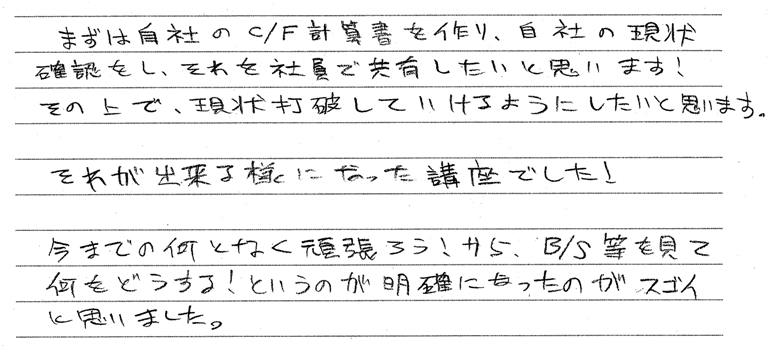 まずは自社のC/F計算書を作り、自社の現状
確認をし、それを社員で共有したいと思います!
その上で、現状打破していけるようにしたいと思います。
それが出来る様になった講座でした!
今までの何となく頑張ろう!から、B/S等を見て
何をどうする!というのが明確になったのがスゴイ
と思いました。